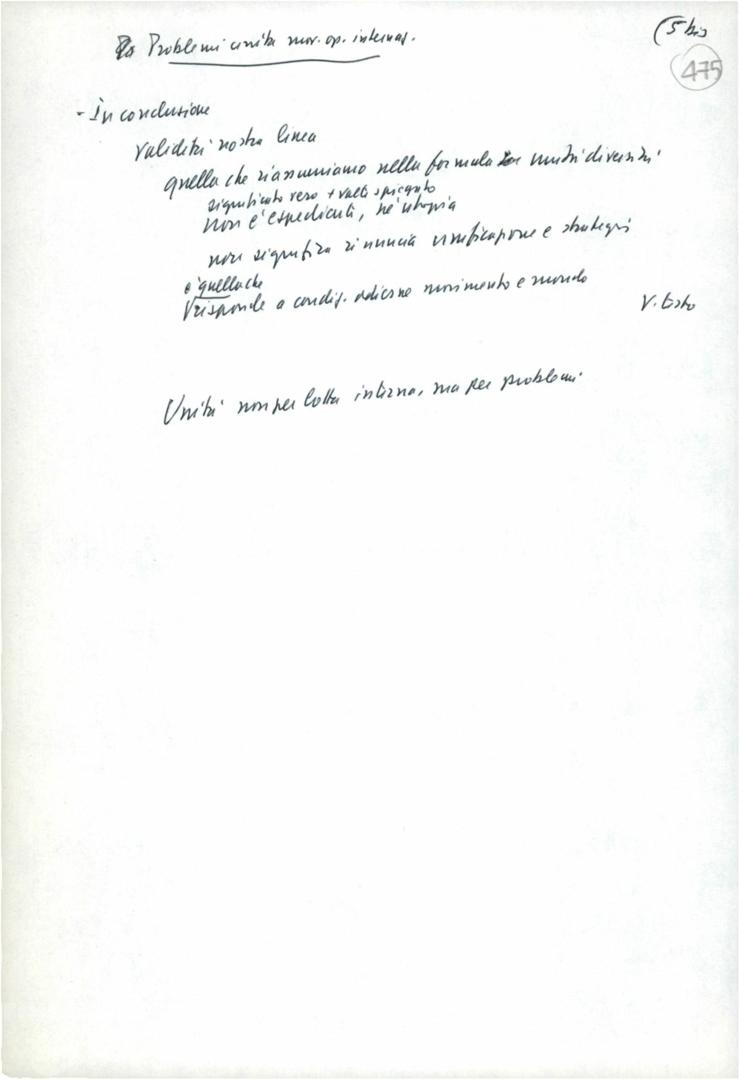 (5 bis
475
Problemi unità mov. op. internaz.
- In conclusione
Validità nostra linea
quella che riassumiamo nella formula unità diversità
significato vero + volte spiegato
non è espedienti, né utopia
non significa rinuncia unificazione e strategia
è quella che
risponde a condiz. odierne movimento e mondo
V. testo
Unità non per lotta interna, ma per problemi